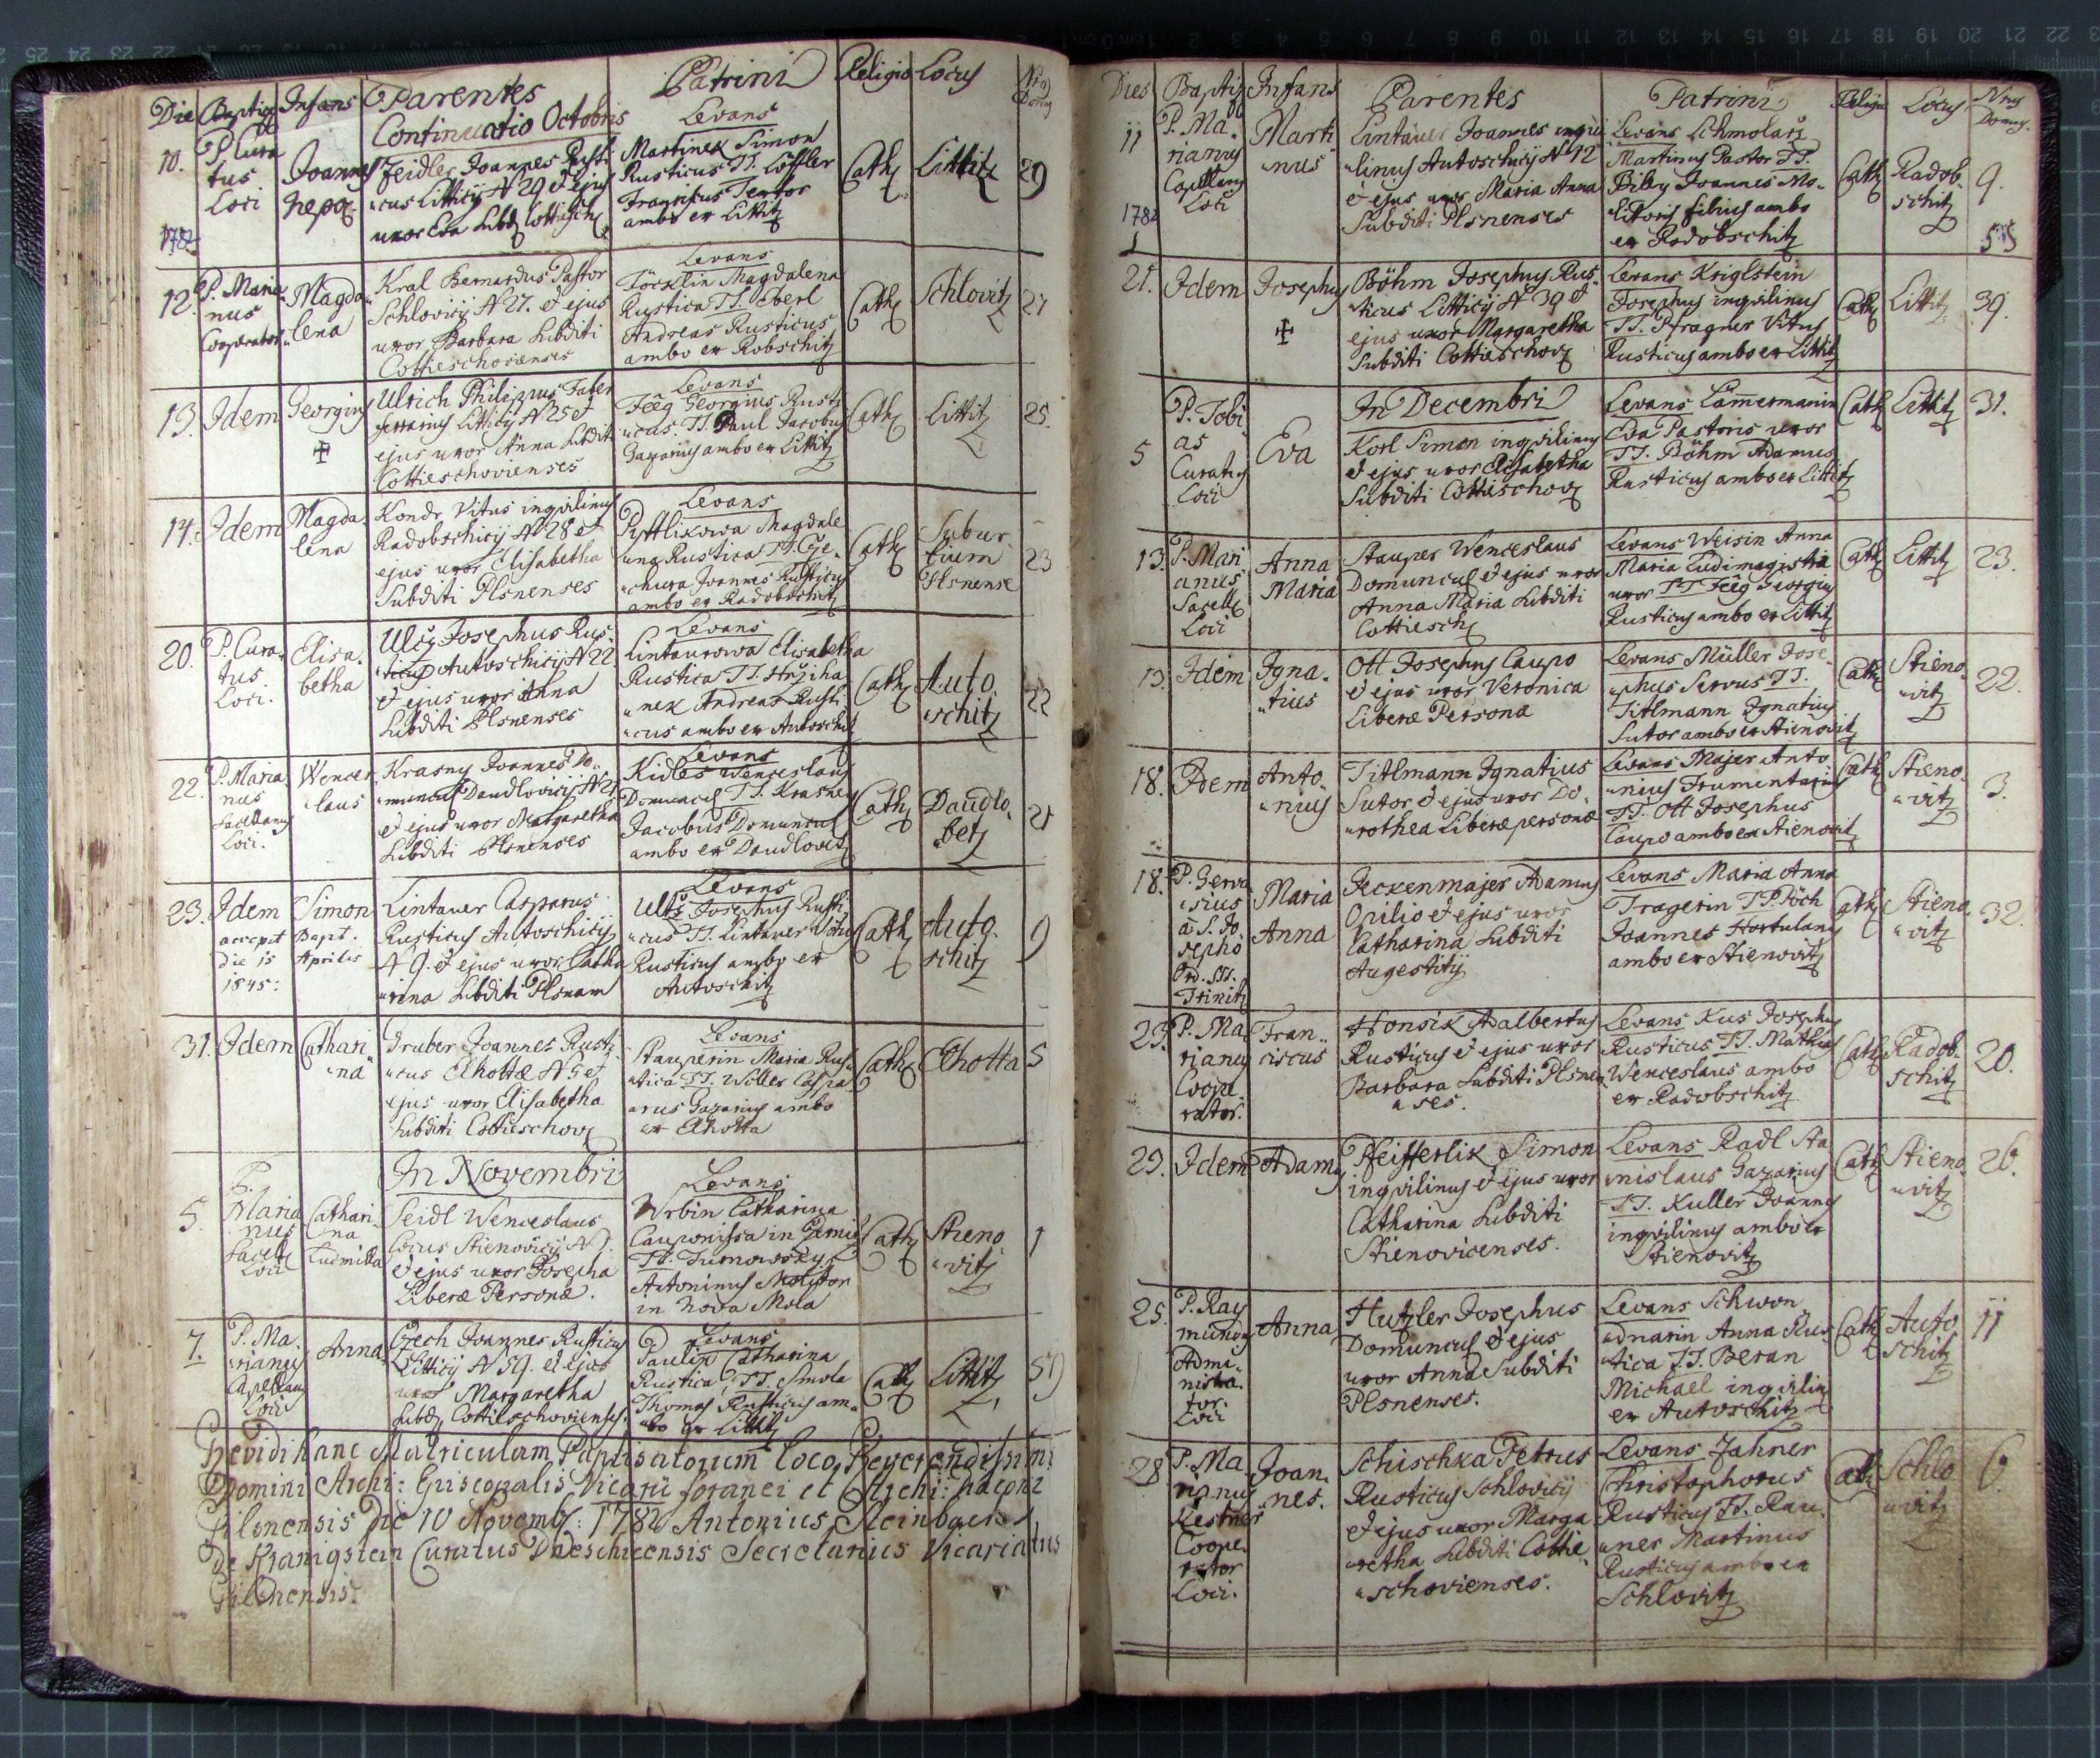 Die Baptizs Infans Parentes Patrini Religio Locus Nrus Domus
Continuatio Octobris
10. P. Cura
tus
Loci
1782
Joannes
Nepo.
Zeidler Joannes Rusti
cus Litticÿ N 29 et ejus
uxor Eva Subd Cottiesch
Levans
Martinek Simon
Rusticus TT. Löffler
Franciscus Textor
ambo ex Littitz
Cath Littitz 29
12. P. Maria
nus
Cooperator
Magda
lena
Kral Bernardus Pastor
Schlovicÿ N 27. et ejus
uxor Barbara Subditi
Cottieschovienses
Levans
Magdalena
Rustica TT. Eberl
Andreas Rusticus
ambo ex Robschitz
Cath Schlovitz 27
13. Idem
Georgius
Ulrich Philippus Faber
ferrarius Litticÿ N 25 et
ejus uxor Anna Subditi
Cottieschovienses
Levans
Feëg Georgius Rusti
cus. TT. Paul Jacobus
Gazarius ambo ex Littitz
Cath Littitz 25.
14. Idem
Magda
lena
Kondr Vitus inqvilinus
Radobschicÿ N 28 et
ejus uxor Elisabetha
Subditi Plsnenses
Levans
Pyttlikowa Magdale
na Rustica TT. Cze
chura Joannes Rusticus
ambo ex Radobschitz
Cath
Subur
bium
Plsnense
23
20. P. Cura
tus
Loci.
Elisa
betha
Ulč Josephus Rus
ticus Autoschicÿ N 22
et ejus uxor Anna
Subditi Plsnenses
Levans
Lintaurowa Elisabetha
Rustica TT. Hřjiha
nek Andreas Rusti
cus ambo ex Autoschitz
Cath
Auto
schitz
22
22. P. Maria
nus
Sacellanus
Loci.
Wences
laus
Krasny Joannes Do
muncul Daudlovicÿ N 21
et ejus uxor Margaretha
Subditi Plsnenses
Levans
Kidles Wenceslaus
Domuncul TT. Krasney
Jacobus Domuncul
ambo ex Daudlovitz
Cath
Daudlo
betz
21
23. Idem
accepit Bapt.
die 15 Aprilis
1845:
Simon
Lintauer Casparus
Rusticus Autoschicÿ
N 9. et ejus uxor Catha
rina Subditi Plsnam
Levans
Ultš Josephus Rusti
cus TT. Lintauer Vitus
Rusticus ambo ex
Autoschitz
Cath
Auto
schitz
9
31. Idem
Cathari
na
Gruber Joannes Rusti
cus Elhottæ N 5 et
ejus uxor Elisabetha
Subditi Cottieschov
Levans
Stauperin Maria Rus
tica TT. Woller Caspa
rus Gazarius ambo
ex Elhotta
Cath Elhotta 5
In Novembri
5. P.
Maria
nus
Sacell
Loci
Cathari
na
Ludmilla
Seidl Wenceslaus
Cocus Stienovicÿ N 1.
et ejus uxor Josepha
Liberæ Personæ.
Levans
Wrbin Catharina
Cauponissa in
TT. Tumowsky
Antoninus Molitor
in Nova Mola
Cath
Stieno
vitz
1
7. P. Ma
rianus
Capellanus
Loci
Anna
Czech Joannes Rusticus
Litticÿ N 59. et ejus
uxor Margaretha
Subd Cottieschovienses.
Levans
Paulin Catharina
Rustica, TT. Smola
Thomas Rusticus am
bo ex Littitz
Cath Littitz 59
Revidi hanc Matriculam Baptisatorum loco Reverendissimi
Domini Archi: Episcopalis Vicarii foranei et Archi: Diaconi
Pilsnensis Die 10 Novemb: 1782 Antonius Steinbach
De Kranigstein Curatus Secretarius Vicariatus
Pilsnensis.
Dies Baptizs Infans Parentes Patrini Religio Locus Nrus Domus.
11 P. Ma
rianus
Capellanus
Loci
1782
Marti
nus
Lintauer Joannes inqui
linus Autoschicÿ N 12
et ejus uxor Maria Anna
Subditi Plsnenses
Levans Schmolarž
Martinus Pastor TT.
Bilby Joannes Mo
litoris filius ambo
ex Radobschitz
Cath
Radob
schitz
9.
21. Idem
Josephus
Böhm Josephus Rus
ticus Litticÿ N 39 et
ejus uxor Margaretha
Subditi Cottieschov
Levans Kriglstein
Josephus inqvilinus
TT. Pfragner Vitus
Rusticus ambo ex Littitz
Cath Littitz 39.
In Decembri
5 P. Tobi
as
Curatus
Loci
Eva
Korl Simon inqvilinus
et ejus uxor Elisabetha
Subditi Cottieschov
Levans Lam̄ermanin
Eva Pastoris uxor
TT. Böhm Adamus
Rusticus ambo ex Littitz
Cath Littitz 31.
13. P. Mari
anus
Sacell
Loci
Anna
Maria
Stauper Wenceslaus
Domuncul et ejus uxor
Anna Maria Subditi
Cottiesch
Levans Weisin Anna
Maria Ludimagistri
uxor TT Feëg Georgius
Rusticus ambo ex Littitz
Cath Littitz 23.
13. Idem
Igna
tius
Ott Josephus Caupo
et ejus uxor Veronica
Liberæ Personæ
Levans Müller Jose
phus Servus TT.
Titlmann Ignatius
Sutor ambo ex Stienovitz
Cath
Stieno
vitz
22.
18. Idem
Anto
nius
Titlmann Ignatius
Sutor et ejus uxor Do
rothea Liberæ personæ
Levans Majer Anto
nius Frumentarius
TT. Ott Josephus
Caupo ambo ex Stienovitz
Cath
Stieno
vitz
3.
18. P. Gerva
sius
a S. Jo
sepho
Ord. SS.
Trinit
Maria
Anna
Jeckenmajer Adamus
Opilio et ejus uxor
Catharina Subditi
Augestitÿ
Levans Maria Anna
Tragerin TT. Pöch
Joannes Hortulanus
ambo ex Stienovitz
Cath
Stieno
vitz
32.
23. P. Ma
rianus
Coope
rator.
Fran
ciscus
Honsik Adalbertus
Rusticus et ejus uxor
Barbara Subditi Plsnen
ses.
Levans Kus Josephus
Rusticus TT. Mathias
Wenceslaus ambo
ex Radobschitz
Cath
Radob
schitz
20.
23. Idem
Adamus
Pfeifferlik Simon
inqvilinus et ejus uxor
Catharina Subditi
Stienovicenses.
Levans Radl Sta
nislaus Gazarius
TT. Kuller Joannes
inqvilinus ambo ex
Stienovitz
Cath
Stieno
vitz
26.
25. P. Ray
mundus
Admi
nistra
tor
Loci
Anna
Hutzler Josephus
Domuncul et ejus
uxor Anna Subditi
Plsnenses.
Levans Schwon
dnarin Anna Rus
tica TT. Beran
Michael inqvilin
ex Autoschitz
Cath
Auto
schitz
11
28 P. Ma
rianus
Kestner
Coope
rator
Loci.
Joan
nes.
Schischka Petrus
Rusticus Schlovicÿ
et ejus uxor Marga
retha Subditi Cottie
schovienses.
Levans Zahner
Christophorus
Rusticus TT. Rau
ner Martinus
Rusticus ambo ex
Schlovitz
Cath
Schlo
vitz
6.